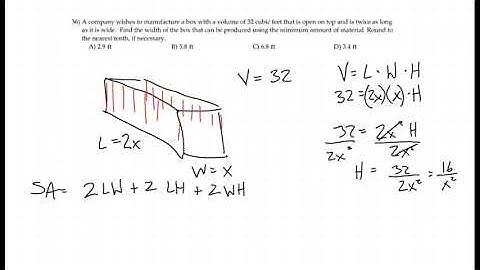 36) A company wishes to manufacture a box with a volume of 32 cubic feet that is open on top and is twice as
long as it is wide. Find the width of the box that can be produced using the minimum amount of material. Round to
the nearest tenth, if necessary.
A) 2.9 ft B) 5.8 ft C) 6.8 ft D) 3.4 ft
V = 32
V = L · W · H
32 = (2x)(x) · H
32 = 2x² H
2x² 2x²
H = 32 = 16
2x² x²
L = 2x
W = x
SA = 2LW + 2LH + 2WH